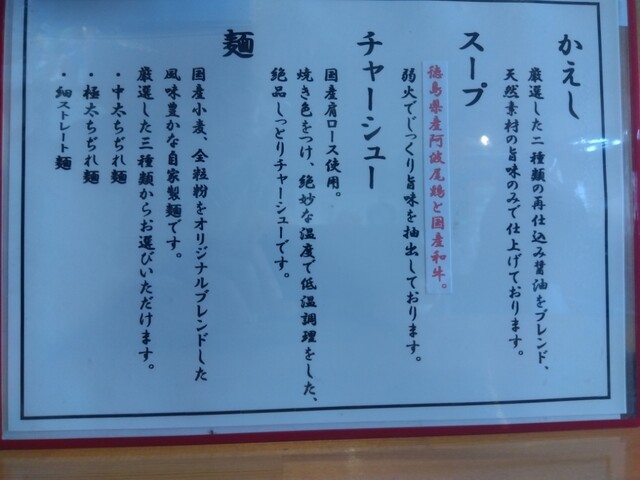 かえし
厳選した二種類の再仕込み醤油をブレンド、
天然素材の旨味のみで仕上げております。
スープ
徳島県産阿波尾鶏と国産和牛。
弱火でじっくり旨味を抽出しております。
チャーシュー
国産肩ロース使用。
焼き色をつけ、絶妙な温度で低温調理をした、
絶品しっとりチャーシューです。
麺
国産小麦、全粒粉をオリジナルブレンドした
風味豊かな自家製麺です。
厳選した三種類からお選びいただけます。
・中太ちぢれ麺
・極太ちぢれ麺
・細ストレート麺